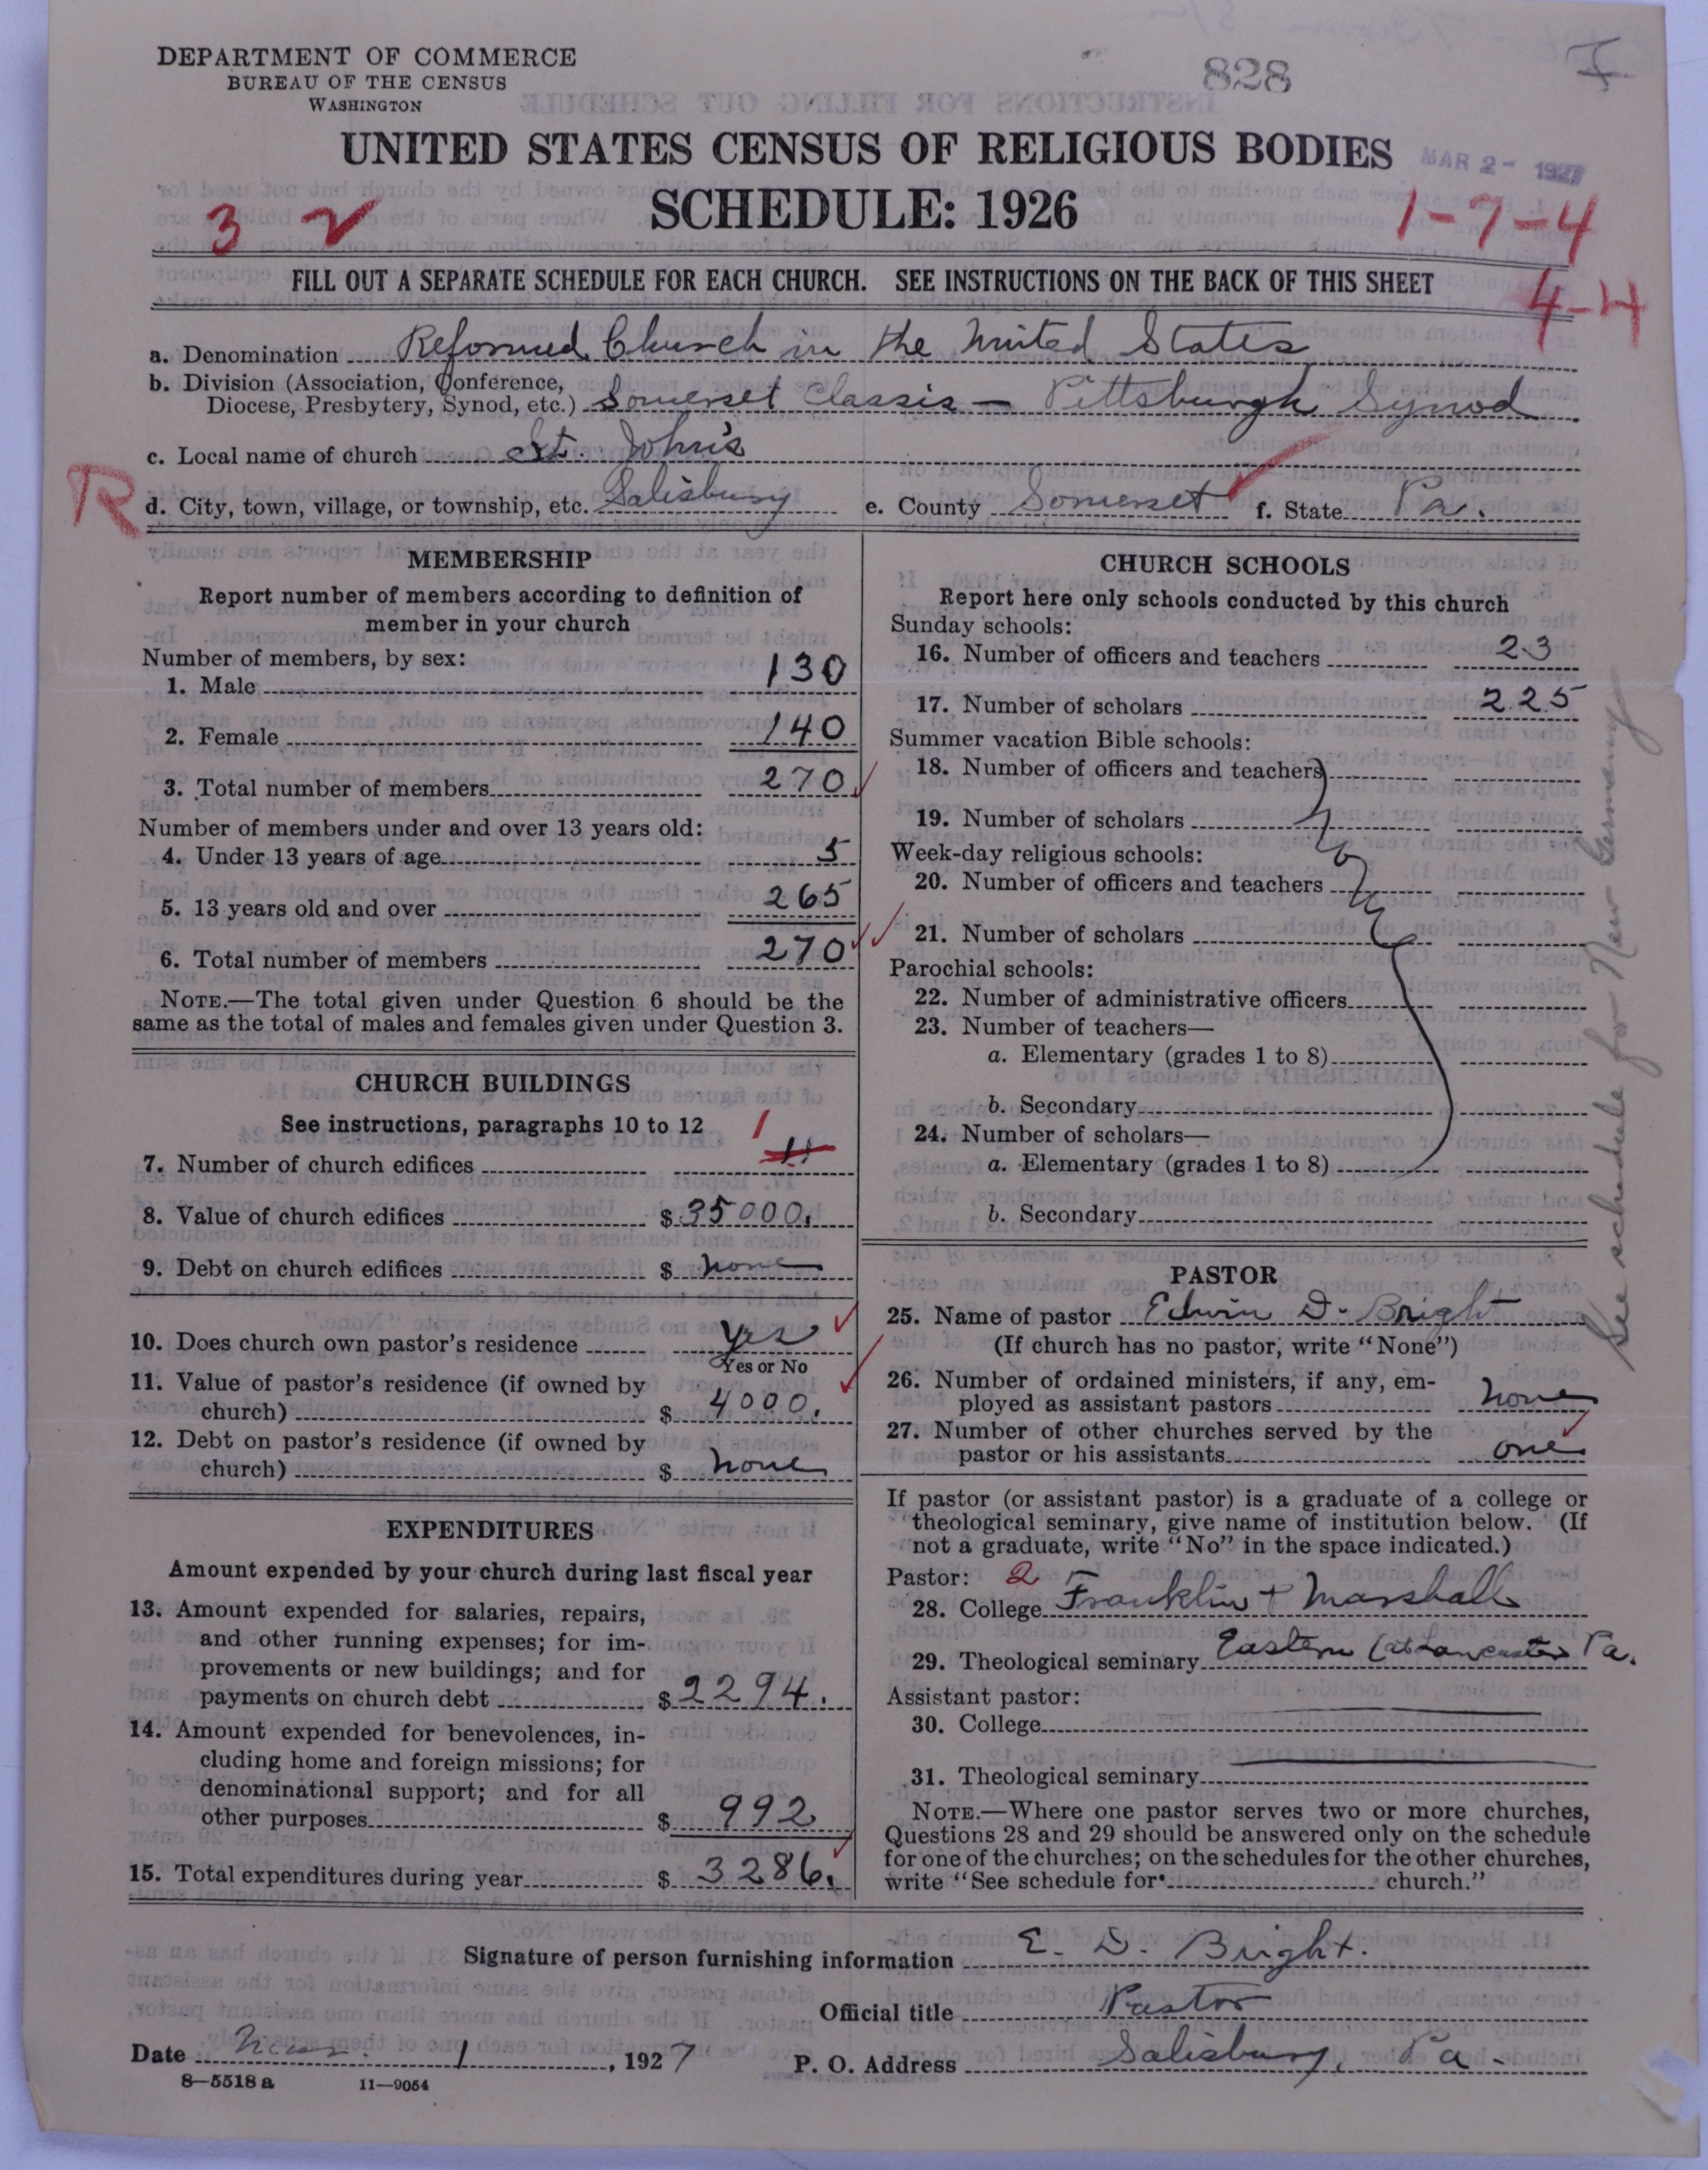 DEPARTMENT OF COMMERCE
BUREAU OF THE CENSUS
WASHINGTON
828
UNITED STATES CENSUS OF RELIGIOUS BODIES
MAR 2- 1927
SCHEDULE: 1926
3
1-7-4
FILL OUT A SEPARATE SCHEDULE FOR EACH CHURCH. SEE INSTRUCTIONS ON THE BACK OF THIS SHEET
4-4
a. Denomination Reformed Church in the United States
b. Division (Association, Conference,
Diocese, Presbytery, Synod, etc.) Somerset Classis — Pittsburgh Synod
c. Local name of church St. John's
R
d. City, town, village, or township, etc. Salisbury e. County Somerset f. State Pa.
MEMBERSHIP
Report number of members according to definition of
member in your church
Number of members, by sex:
1. Male 130
2. Female 140
3. Total number of members 270
Number of members under and over 13 years old:
4. Under 13 years of age 5
5. 13 years old and over 265
6. Total number of members 270
NOTE.—The total given under Question 6 should be the
same as the total of males and females given under Question 3.
CHURCH BUILDINGS
See instructions, paragraphs 10 to 12
1
7. Number of church edifices
8. Value of church edifices $ 35000.
9. Debt on church edifices $ none
10. Does church own pastor's residence yes
Yes or No
11. Value of pastor's residence (if owned by
church) $ 4000.
12. Debt on pastor's residence (if owned by
church) $ none
EXPENDITURES
Amount expended by your church during last fiscal year
13. Amount expended for salaries, repairs,
and other running expenses; for im-
provements or new buildings; and for
payments on church debt $ 2294.
14. Amount expended for benevolences, in-
cluding home and foreign missions; for
denominational support; and for all
other purposes $ 992.
15. Total expenditures during year $ 3286.
CHURCH SCHOOLS
Report here only schools conducted by this church
Sunday schools:
16. Number of officers and teachers 23
17. Number of scholars 225
Summer vacation Bible schools:
18. Number of officers and teachers
19. Number of scholars
Week-day religious schools:
20. Number of officers and teachers
21. Number of scholars
Parochial schools:
22. Number of administrative officers
23. Number of teachers—
a. Elementary (grades 1 to 8)
b. Secondary
24. Number of scholars—
a. Elementary (grades 1 to 8)
b. Secondary
See schedule for New Germany
PASTOR
25. Name of pastor Edwin D. Bright
(If church has no pastor, write "None")
26. Number of ordained ministers, if any, em-
ployed as assistant pastors none
27. Number of other churches served by the
pastor or his assistants one
If pastor (or assistant pastor) is a graduate of a college or
theological seminary, give name of institution below. (If
not a graduate, write "No" in the space indicated.)
Pastor: 2
28. College Franklin + Marshall
29. Theological seminary Eastern (at Lancaster Pa.
Assistant pastor:
30. College
31. Theological seminary
NOTE.—Where one pastor serves two or more churches,
Questions 28 and 29 should be answered only on the schedule
for one of the churches; on the schedules for the other churches,
write "See schedule for church."
Signature of person furnishing information E. D. Bright.
Official title Pastor
Date Mar. 1, 1927 P. O. Address Salisbury, Pa.
8—5518 a 11—9054